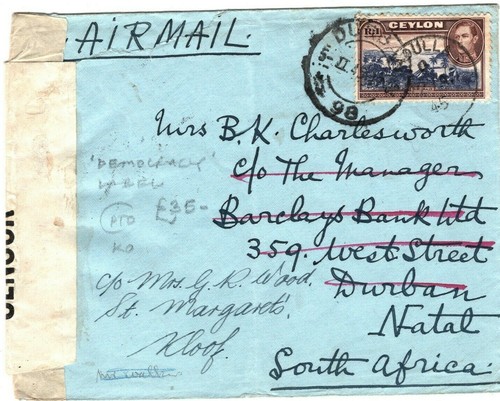 AIRMAIL.
CEYLON
Mrs B. K. Charlesworth
c/o The Manager
Barclays Bank Ltd
359. West Street
Durban
Natal
South Africa.
'DEMOCRACY'
LABEL
£35-
PTO
KO
c/o Mrs. G. R. Wood.
St. Margaret's.
Kloof.
CENSOR
98